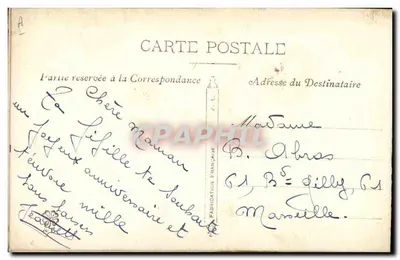 A
CARTE POSTALE
Partie réservée à la Correspondance
Adresse du Destinataire
Chère Maman
La Fifille te souhaite
un joyeux anniversaire et
t'envoie mille
bons baisers
Madame
B. Abros
61, Bd Gilly, 61
Marseille.
FABRICATION FRANÇAISE
CARPHIL